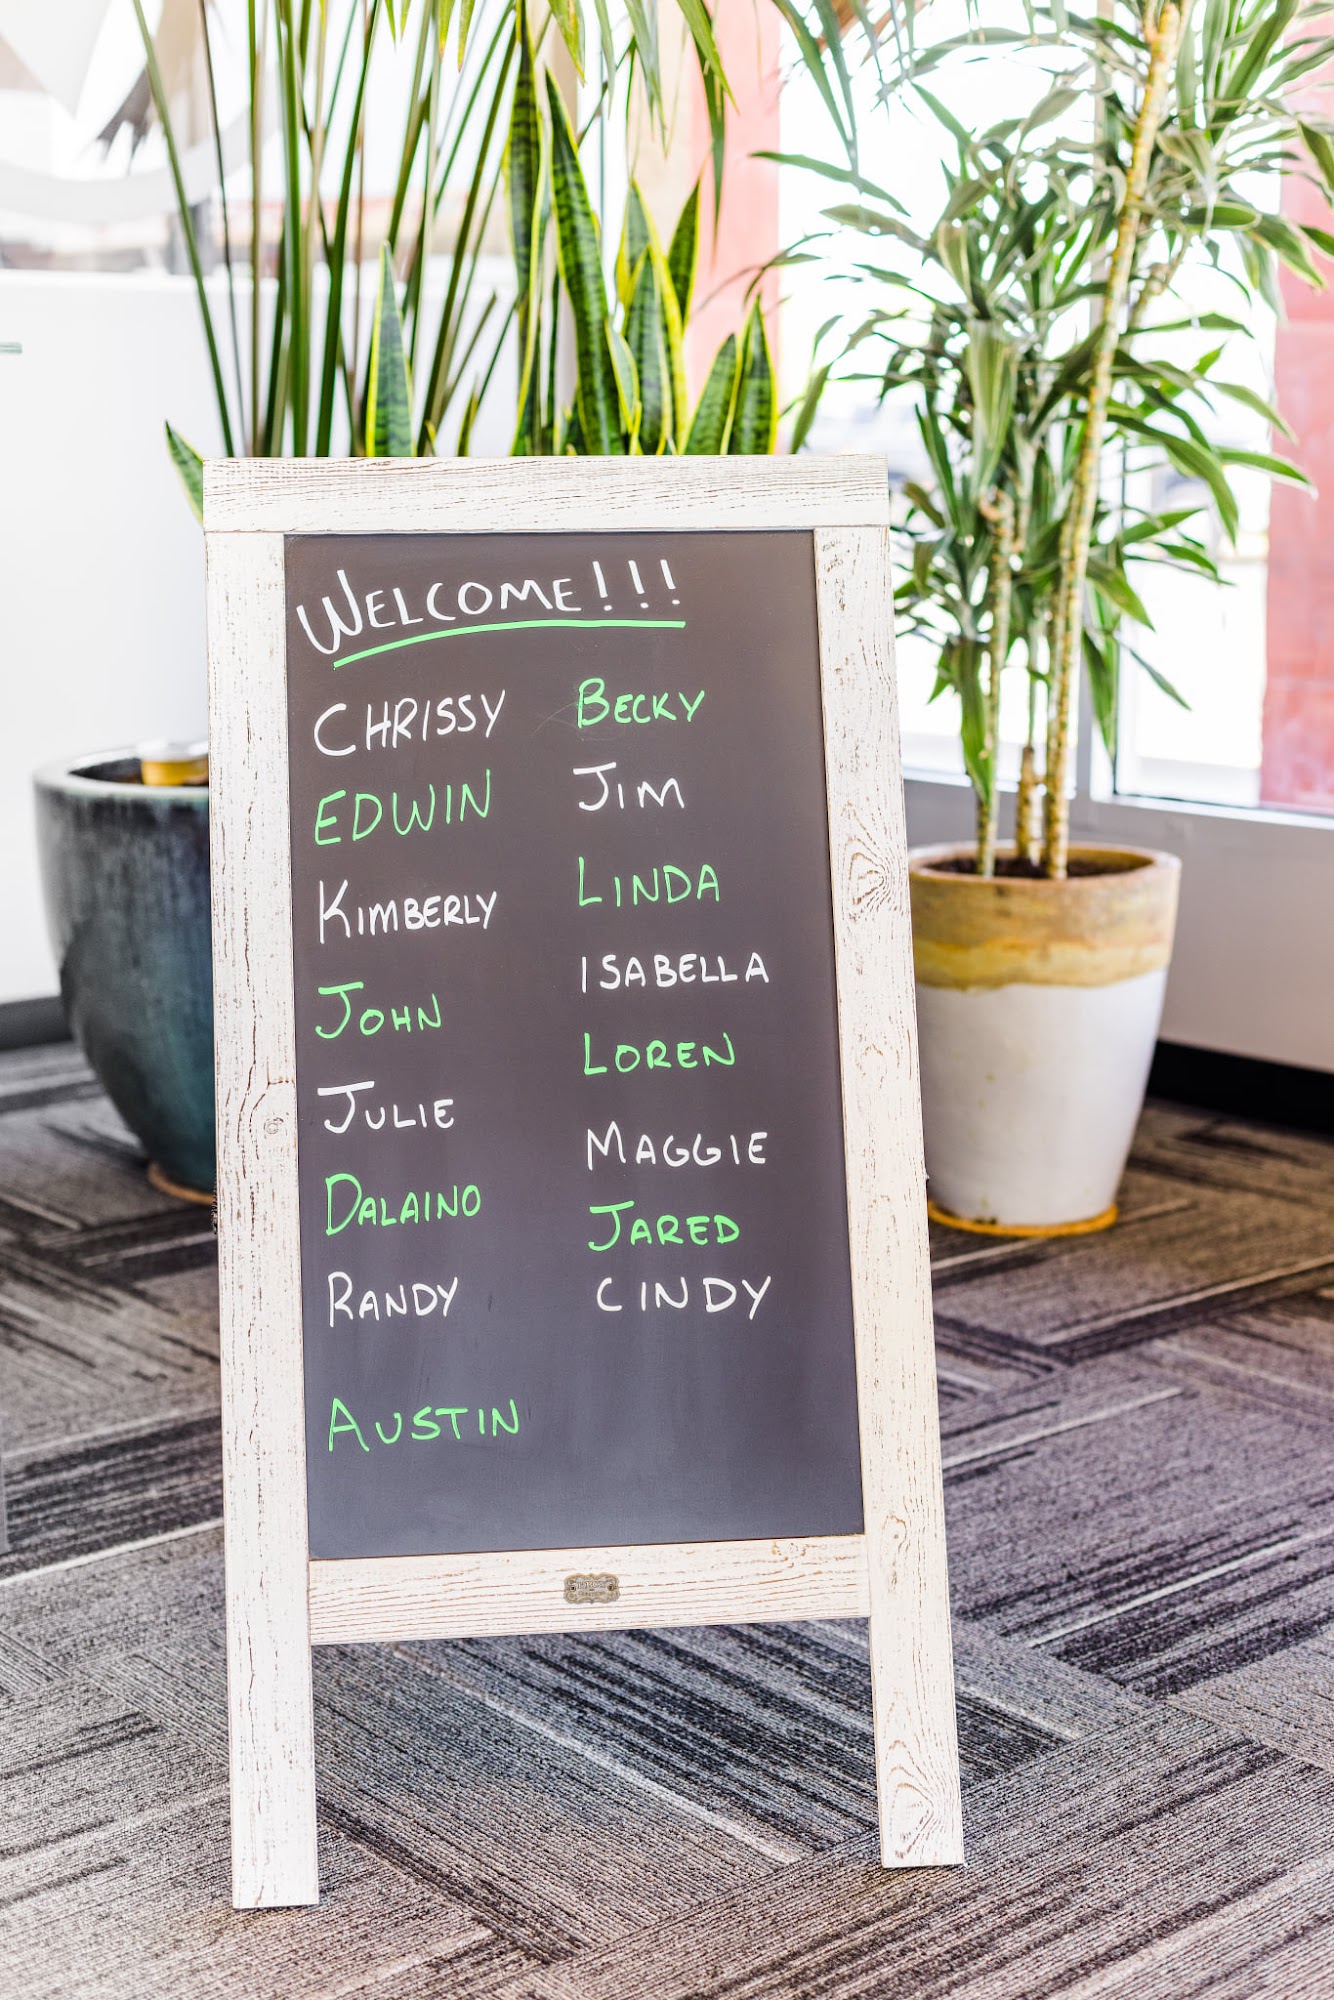 WELCOME!!!
CHRISSY
EDWIN
KIMBERLY
JOHN
JULIE
DALAINO
RANDY
AUSTIN
BECKY
JIM
LINDA
ISABELLA
LOREN
MAGGIE
JARED
CINDY